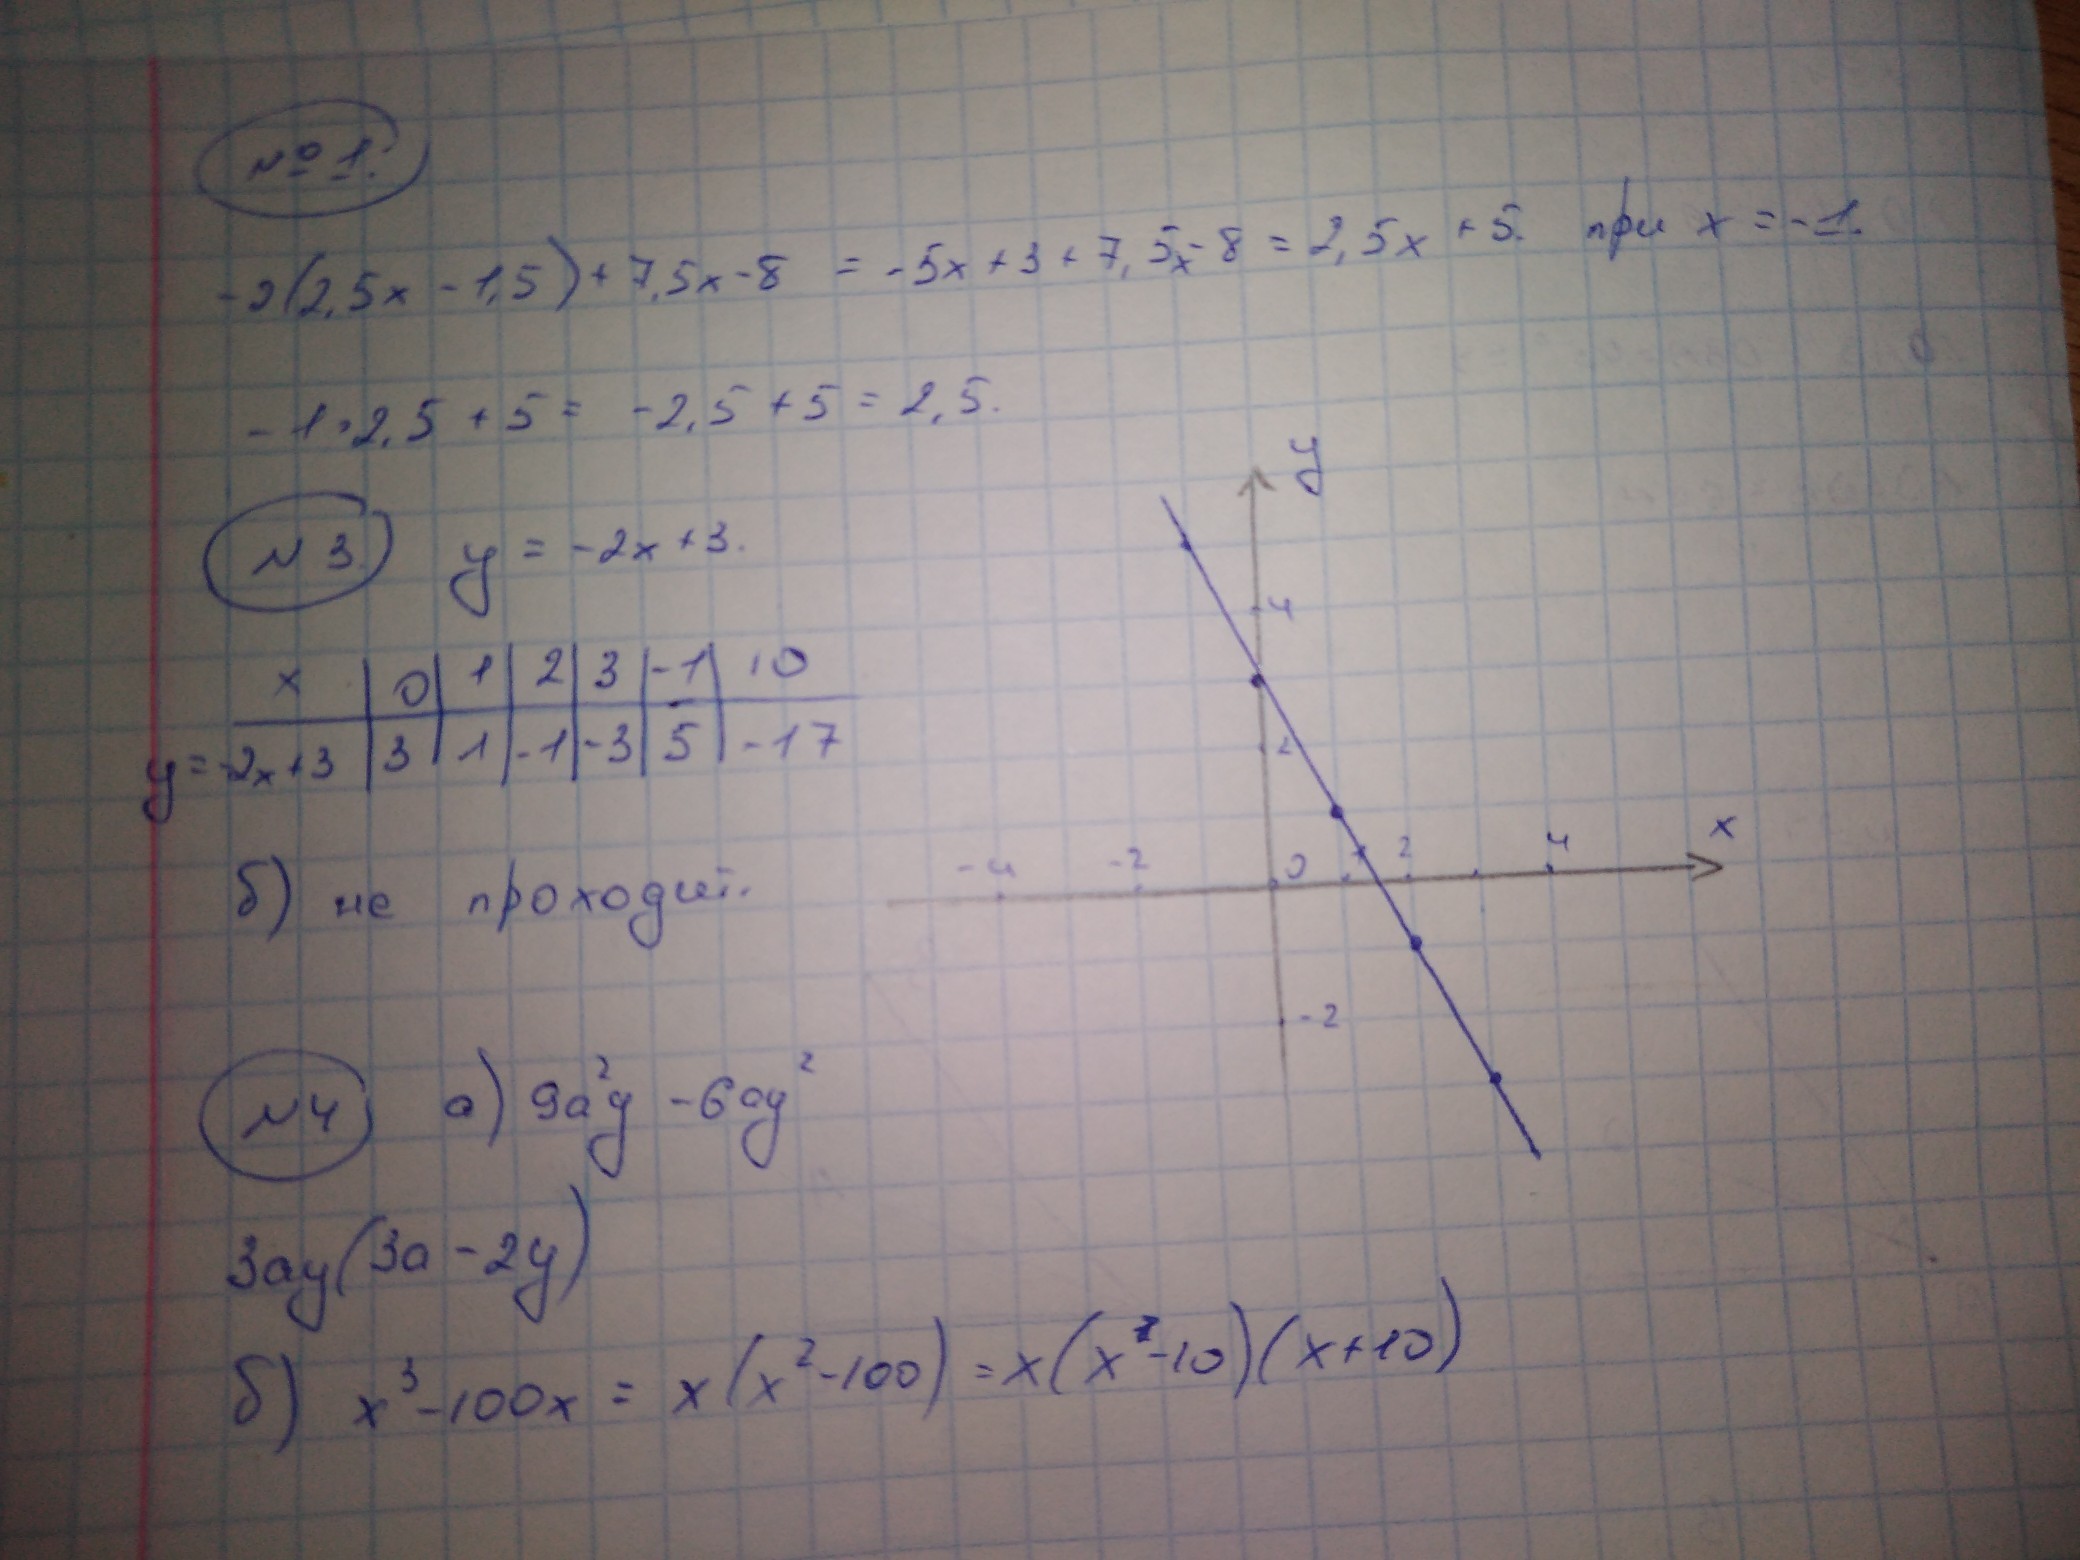 № 1.
-2(2,5x - 1,5) + 7,5x - 8 = -5x + 3 + 7,5x - 8 = 2,5x + 5. при x = -1.
-1·2,5 + 5 = -2,5 + 5 = 2,5.
N 3. y = -2x + 3.
x | 0 | 1 | 2 | 3 | -1 | 10
y = -2x + 3 | 3 | 1 | -1 | -3 | 5 | -17
y
4
2
-4 -2 0 2 4 x
-2
б) не проходит.
N 4 а) 9a²y - 6ay²
3ay(3a - 2y)
б) x³ - 100x = x(x² - 100) = x(x - 10)(x + 10)